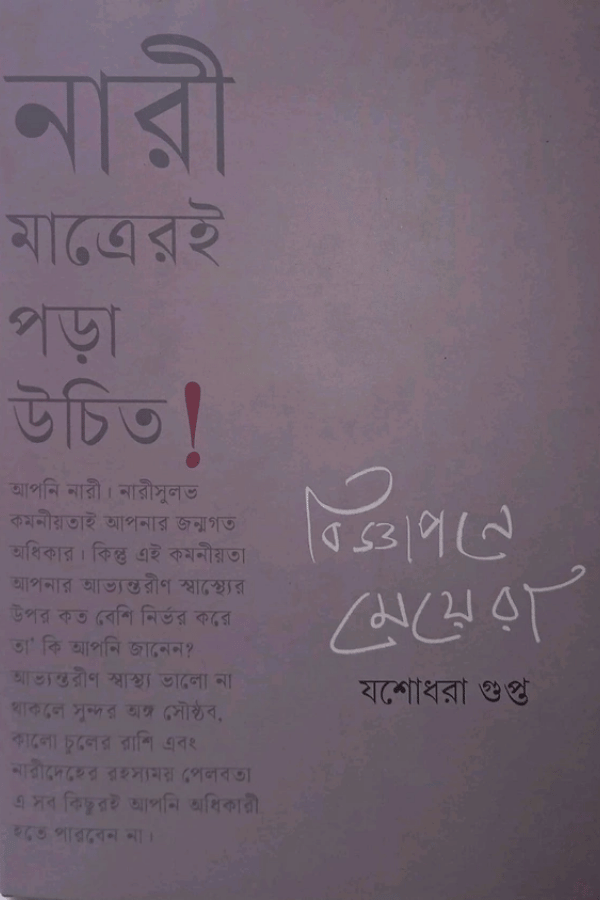 নারী
মাত্রেরই
পড়া
উচিত!
আপনি নারী। নারীসুলভ
কমনীয়তাই আপনার জন্মগত
অধিকার। কিন্তু এই কমনীয়তা
আপনার আভ্যন্তরীণ স্বাস্থ্যের
উপর কত বেশি নির্ভর করে
তা' কি আপনি জানেন?
আভ্যন্তরীণ স্বাস্থ্য ভালো না
থাকলে সুন্দর অঙ্গ সৌষ্ঠব,
কালো চুলের রাশি এবং
নারীদেহের রহস্যময় পেলবতা
এ সব কিছুরই আপনি অধিকারী
হতে পারবেন না।
বিজ্ঞাপনে
মেয়েরা
যশোধরা গুপ্ত